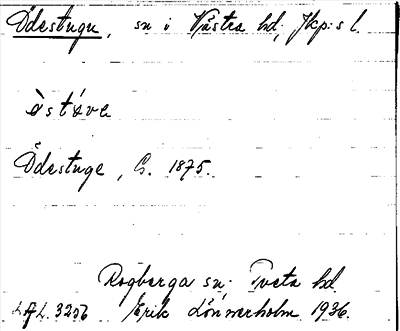 Ödestugu, sn i Västra hd, Jkp:s l.
östǿve
Ödestuge, C. 1875.
Rogberga sn. Tveta hd
Erik Lönnerholm 1936.